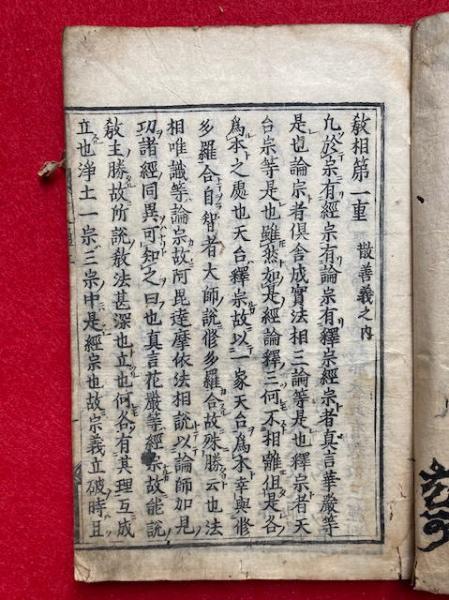 教相第一重　散善義之内
凡於宗有經宗有論宗有釋宗經宗者真言華嚴等
是也論宗者倶舎成實法相三論等是也釋宗者天
台宗等是也雖然如是經論釋三何不相離但是各
為本之處也天台釋宗故以一家天台為本幸與修
多羅合自智者大師説修多羅合故殊勝云也法
相唯識等論宗故阿毘達摩依法相説以論師加見
功諸經同異可知之曰也真言花嚴等經宗故能説
教主勝故所説教法甚深也立也何各有其理互成
立也浄土一宗三宗中是經宗也故宗義立破時且